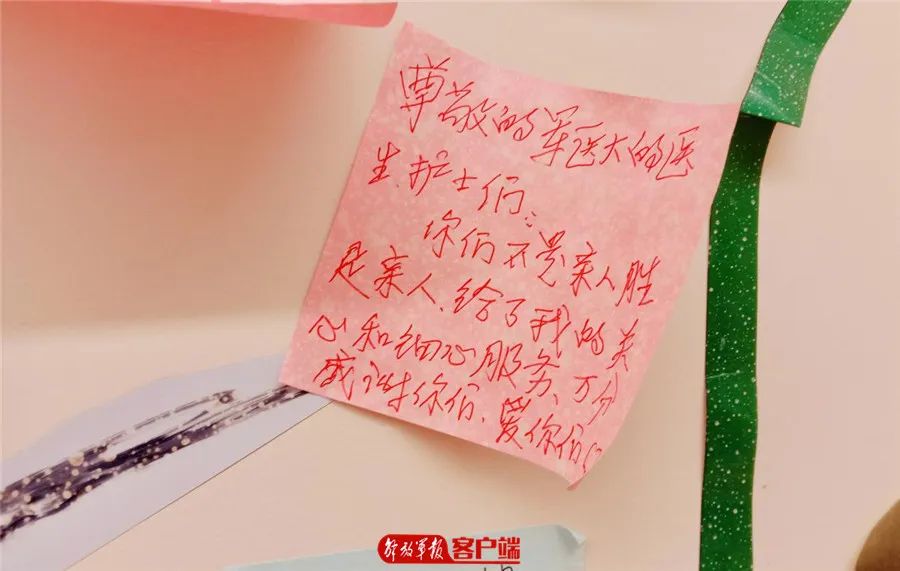 尊敬的军医大的医
生.护士们:
你们不是亲人胜
是亲人.给了我的关
心和细心服务、万分
感谢你们.爱你们
解放军报 客户端